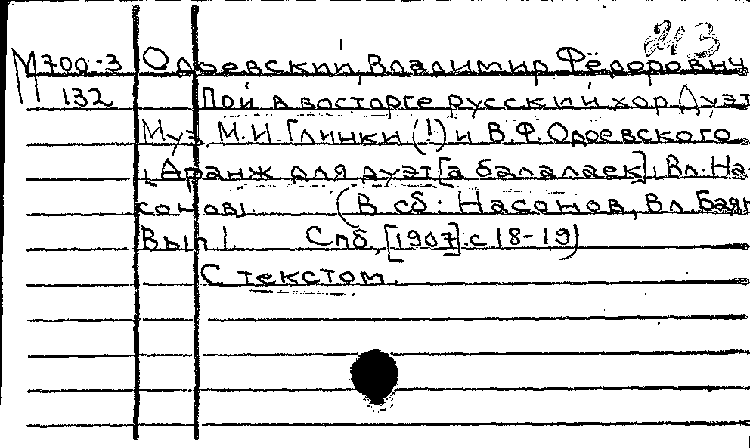 213
М700-3 Одоевский, Владимир Фёдорович
132 Пой в восторге русский хор. Дуэт
Муз. М.И. Глинки (!) и В.Ф. Одоевского
[Аранж для дуэт[а балалаек]: Вл. На-
сонов]. (В сб: Насонов, Вл. Баян
Вып 1. Спб, [1907] с 18-19)
С текстом.